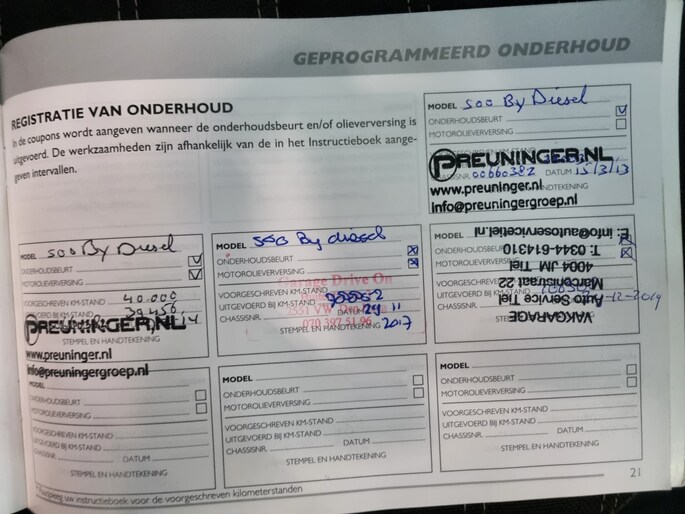 GEPROGRAMMEERD ONDERHOUD
REGISTRATIE VAN ONDERHOUD
In de coupons wordt aangeven wanneer de onderhoudsbeurt en/of olieverversing is
uitgevoerd. De werkzaamheden zijn afhankelijk van de in het Instructieboek aange-
geven intervallen.
MODEL 500 By Diesel
ONDERHOUDSBEURT
MOTOROLIEVERVERSING
PREUNINGER.NL
CHASSISNR. 00660382 DATUM 15/3/13
www.preuninger.nl
info@preuningergroep.nl
MODEL 500 By Diesel
ONDERHOUDSBEURT
MOTOROLIEVERVERSING
VOORGESCHREVEN KM-STAND 40.000
UITGEVOERD BIJ KM-STAND 39.456
PREUNINGER.NL
STEMPEL EN HANDTEKENING
www.preuninger.nl
info@preuningergroep.nl
MODEL 500 By diesel
ONDERHOUDSBEURT
MOTOROLIEVERVERSING
Garage Drive On
VOORGESCHREVEN KM-STAND
UITGEVOERD BIJ KM-STAND
CHASSISNR. DATUM 24 11
2017
070 397 51 96
STEMPEL EN HANDTEKENING
MODEL
ONDERHOUDSBEURT
MOTOROLIEVERVERSING
VOORGESCHREVEN KM-STAND
UITGEVOERD BIJ KM-STAND
CHASSISNR. 12-2019
VAKGARAGE
Auto Service Tiel
Marconistraat 22
4004 JM Tiel
T: 0344-614310
E: info@autoservicetiel.nl
MODEL
ONDERHOUDSBEURT
MOTOROLIEVERVERSING
VOORGESCHREVEN KM-STAND
UITGEVOERD BIJ KM-STAND
CHASSISNR. DATUM
STEMPEL EN HANDTEKENING
MODEL
ONDERHOUDSBEURT
MOTOROLIEVERVERSING
VOORGESCHREVEN KM-STAND
UITGEVOERD BIJ KM-STAND
CHASSISNR. DATUM
STEMPEL EN HANDTEKENING
MODEL
ONDERHOUDSBEURT
MOTOROLIEVERVERSING
VOORGESCHREVEN KM-STAND
UITGEVOERD BIJ KM-STAND
CHASSISNR. DATUM
STEMPEL EN HANDTEKENING
uw instructieboek voor de voorgeschreven kilometerstanden
21